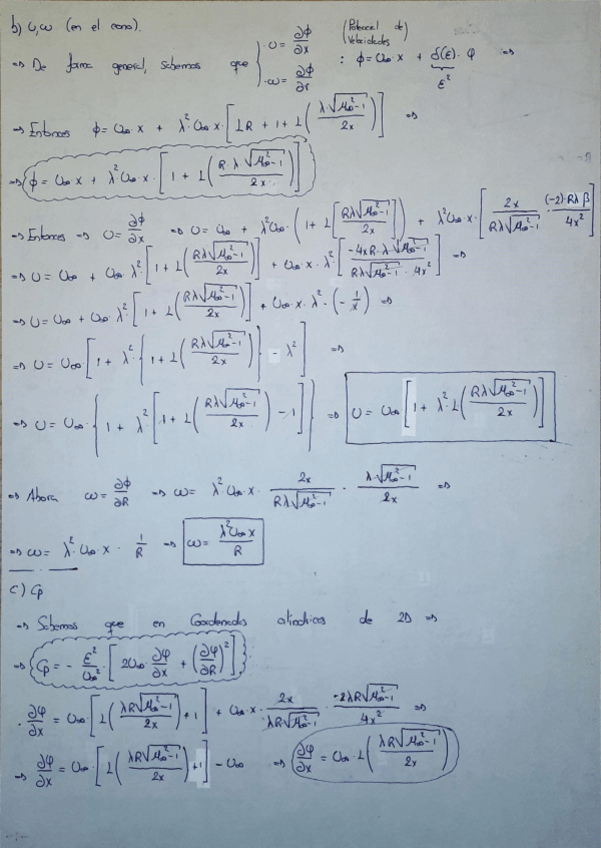 b) U, ω (en el cono).
⇒ De forma general, sabemos que { U = ∂ϕ/∂x ; ω = ∂ϕ/∂r : ϕ = U∞·x + δ(ε)·φ ⇒ (Potencial de Velocidades) ε²
⇒ Entonces ϕ = U∞ x + λ² U∞ x · [LR + 1 + L(λ√(M∞²-1) / 2x)] ⇒
⇒ ϕ = U∞ x + λ² U∞ x · [1 + L(R·λ·√(M∞²-1) / 2x)]
⇒ Entonces ⇒ U = ∂ϕ/∂x ⇒ U = U∞ + λ² U∞ · (1 + L[Rλ√(M∞²-1) / 2x]) + λ² U∞ x · [2x / Rλ√(M∞²-1) · (-2)Rλβ / 4x²]
⇒ U = U∞ + U∞ λ² [1 + L(Rλ√(M∞²-1) / 2x)] + U∞ · x · λ² [-4xR·λ·√(M∞²-1) / Rλ√(M∞²-1) · 4x²] ⇒
⇒ U = U∞ + U∞ λ² [1 + L(Rλ√(M∞²-1) / 2x)] + U∞ · x · λ² · (-1/x) ⇒
⇒ U = U∞ [1 + λ² {1 + L(Rλ√(M∞²-1) / 2x)} - λ²] ⇒
⇒ U = U∞ · {1 + λ² [1 + L(Rλ√(M∞²-1) / 2x) - 1]} ⇒ U = U∞ [1 + λ² · L(Rλ√(M∞²-1) / 2x)]
⇒ Ahora ω = ∂ϕ/∂R ⇒ ω = λ² · U∞ x · 2x / Rλ√(M∞²-1) · λ·√(M∞²-1) / 2x ⇒
⇒ ω = λ² · U∞ x · 1/R ⇒ ω = λ² U∞ x / R
c) Cp
⇒ Sabemos que en Coordenadas cilíndricas de 2D ⇒
⇒ Cp = - ε²/U∞² · [2U∞ · ∂φ/∂x + (∂φ/∂R)²]
· ∂φ/∂x = U∞ · [L(λR√(M∞²-1) / 2x) + 1] + U∞ x · 2x / λR√(M∞²-1) · -2λR√(M∞²-1) / 4x² ⇒
⇒ ∂φ/∂x = U∞ · [L(λR√(M∞²-1) / 2x) + 1] - U∞ ⇒ ∂φ/∂x = U∞ · L(λR√(M∞²-1) / 2x)